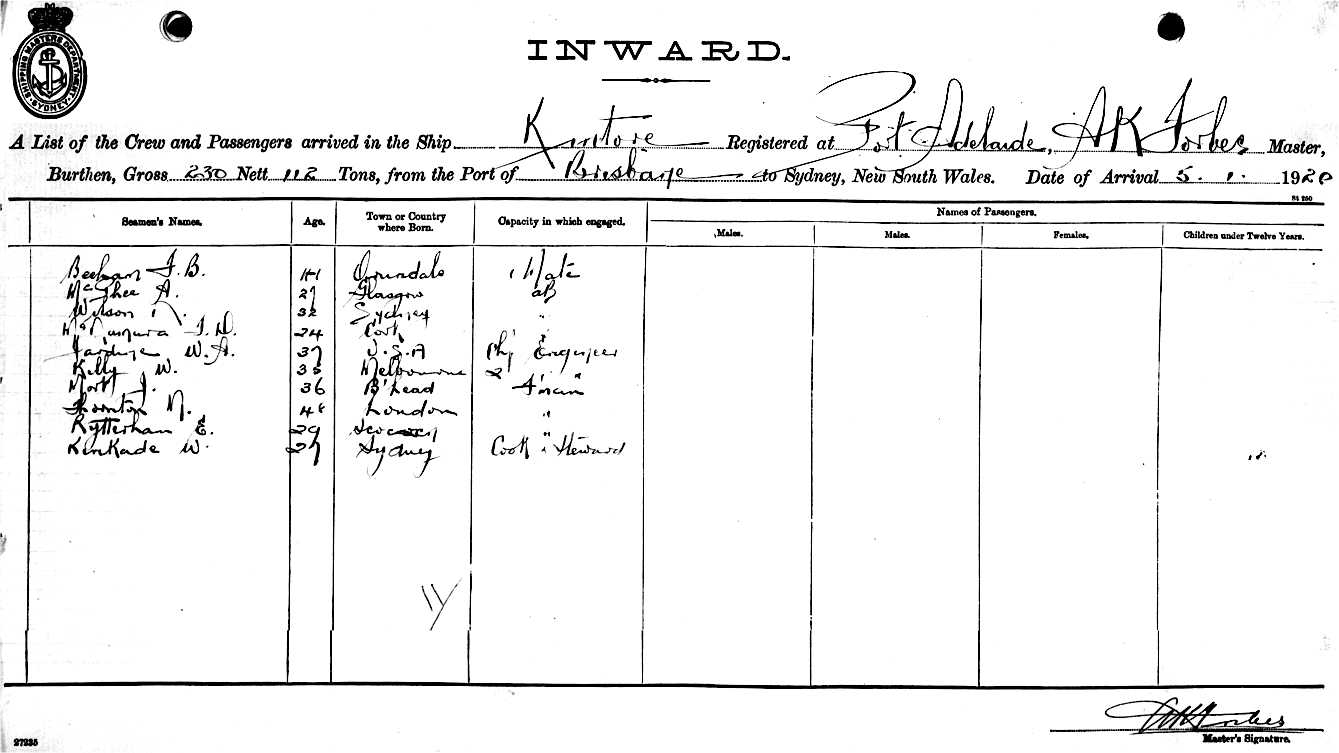 SHIPPING MASTERS DEPARTMENT SYDNEY
INWARD.
A List of the Crew and Passengers arrived in the Ship Kintore Registered at Port Adelaide, AK Forbes Master,
Burthen, Gross 230 Nett 112 Tons, from the Port of Brisbane to Sydney, New South Wales. Date of Arrival 5. 1. 1920
Seamen's Names. Age. Town or Country where Born. Capacity in which engaged. Names of Passengers.
Males. Males. Females. Children under Twelve Years.
Beeham F.B. 41 Mate
McGhee A. 27 Glasgow AB
Wilson 32 Sydney "
McNamara J.D. 24 Cork "
Jardine W.A. 37 U.S.A Engineer
Kelly W. 35 Melbourne 2 "
Mort J. 36 B'head F'man
Thornton N. 48 London "
E. 29 "
Kinkade W. 27 Sydney Cook & Steward
AK Forbes
Master's Signature.
27235